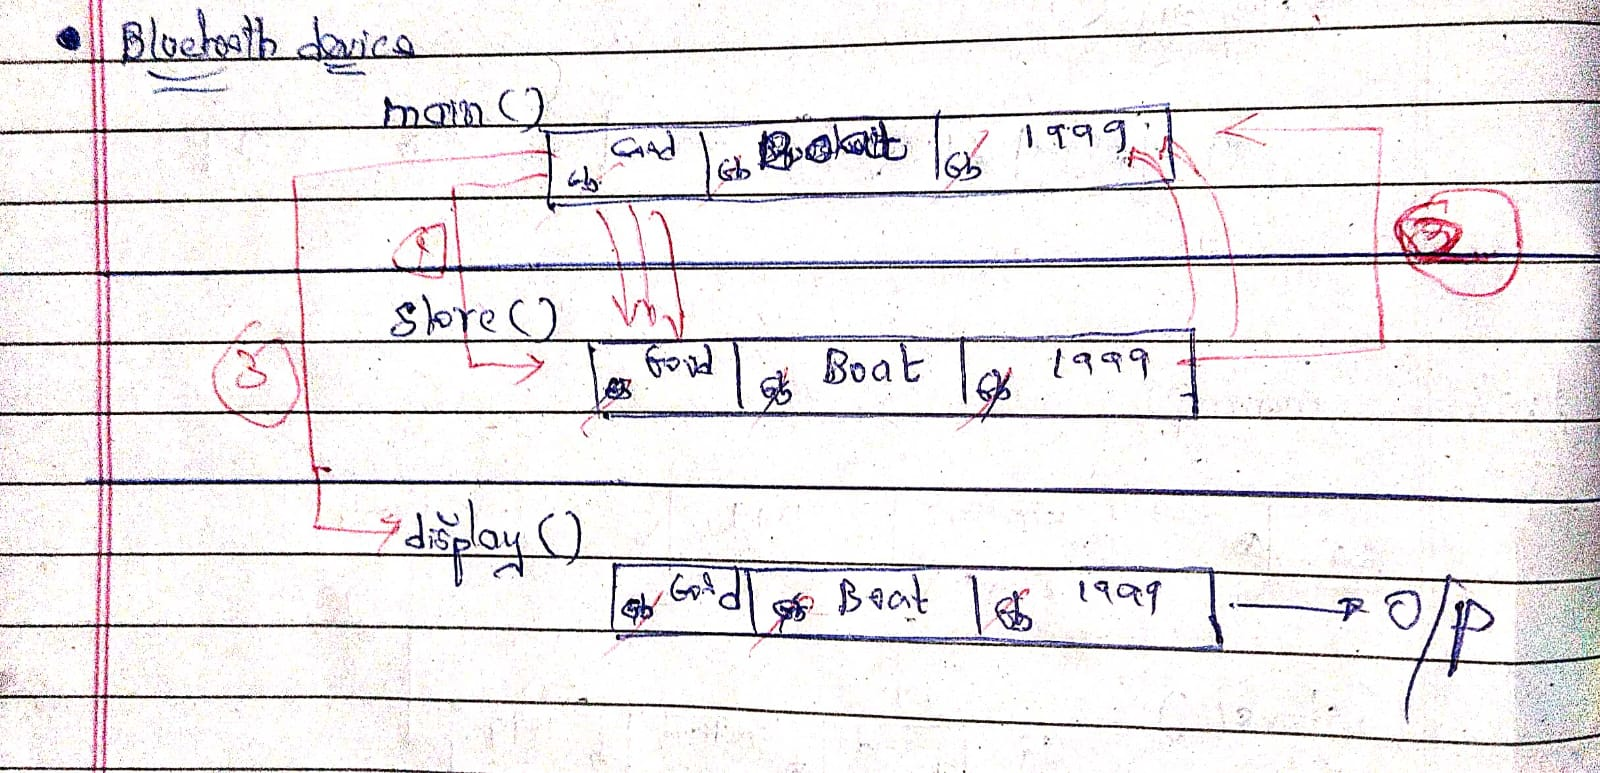 Bluetooth device
main()
Gb 1999
store()
Gb Gold Gb Boat Gb 1999
3
display()
Gb Gold Gb Boat Gb 1999 O/P